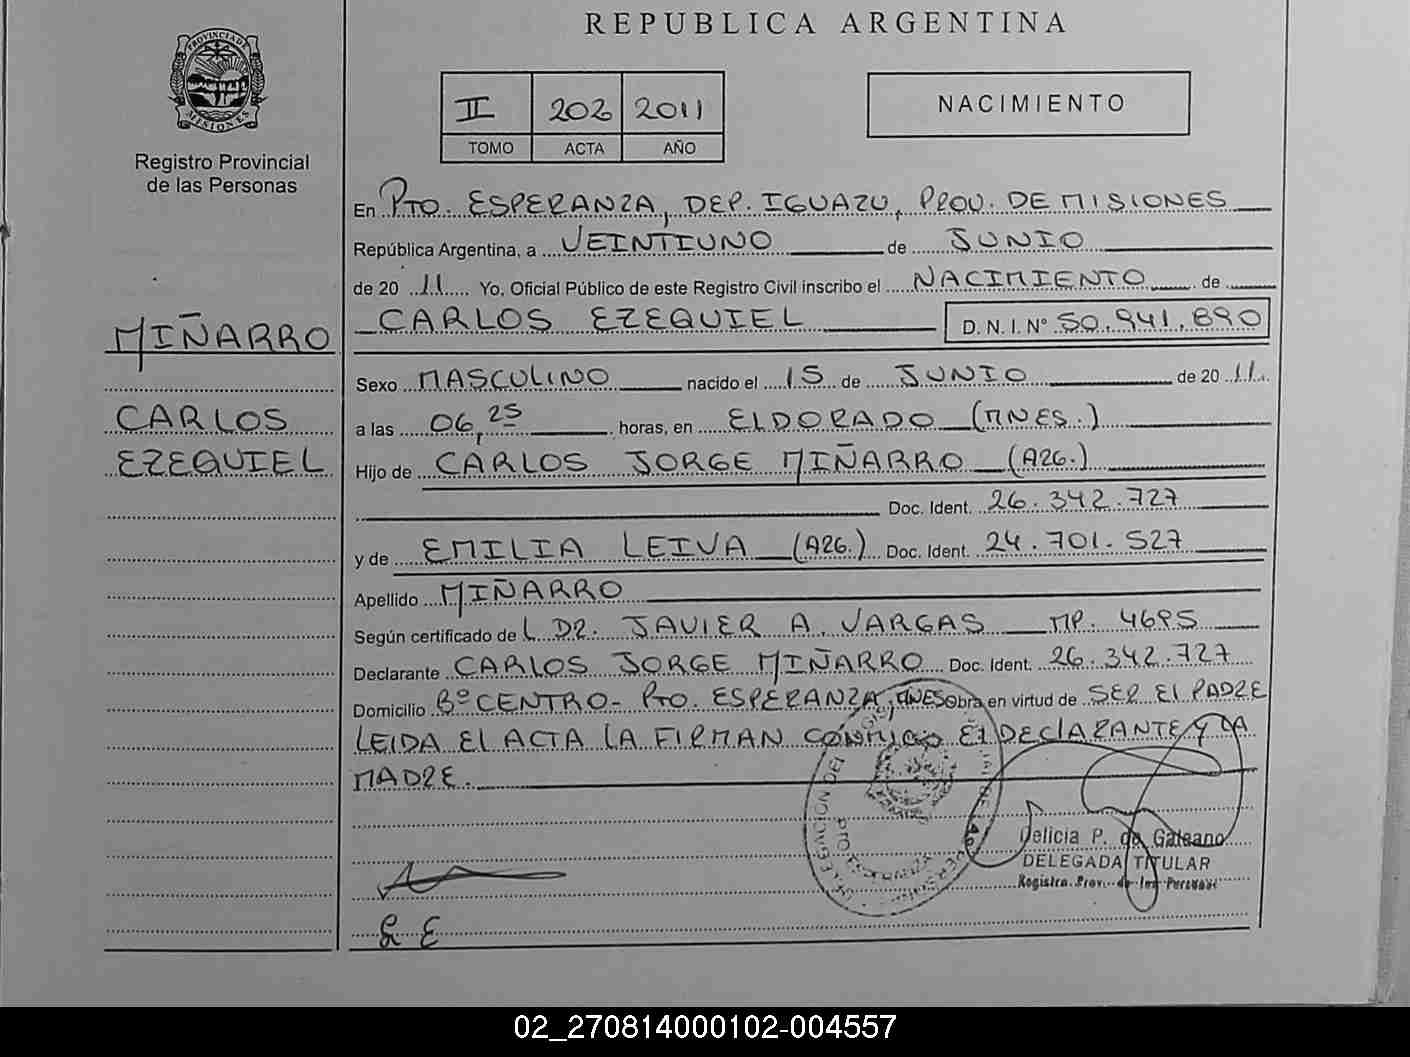 REPUBLICA ARGENTINA
PROVINCIA DE
MISIONES
Registro Provincial
de las Personas
II 202 2011
TOMO ACTA AÑO
NACIMIENTO
MIÑARRO
CARLOS
EZEQUIEL
En PTO. ESPERANZA, DEP. IGUAZU, PROV. DE MISIONES
República Argentina, a VEINTIUNO de JUNIO
de 20 11 Yo, Oficial Público de este Registro Civil inscribo el NACIMIENTO de
CARLOS EZEQUIEL D.N.I. Nº 50.941.890
Sexo MASCULINO nacido el 15 de JUNIO de 20 11.
a las 06,25 horas, en ELDORADO (MNES.)
Hijo de CARLOS JORGE MIÑARRO (A2G.)
Doc. Ident. 26.342.727
y de EMILIA LEIVA (A2G.) Doc. Ident. 24.701.527
Apellido MIÑARRO
Según certificado de L DR. JAVIER A. VARGAS MP. 4695
Declarante CARLOS JORGE MIÑARRO Doc. Ident. 26.342.727
Domicilio Bº CENTRO - PTO. ESPERANZA, MNES Obra en virtud de SER EL PADRE
LEIDA EL ACTA LA FIRMAN CONMIGO EL DECLARANTE Y LA
MADRE.
DELEGACION DEL
PTO
Delicia P. de Galeano
DELEGADA TITULAR
Registro Prov. de las Personas
L E
02_270814000102-004557